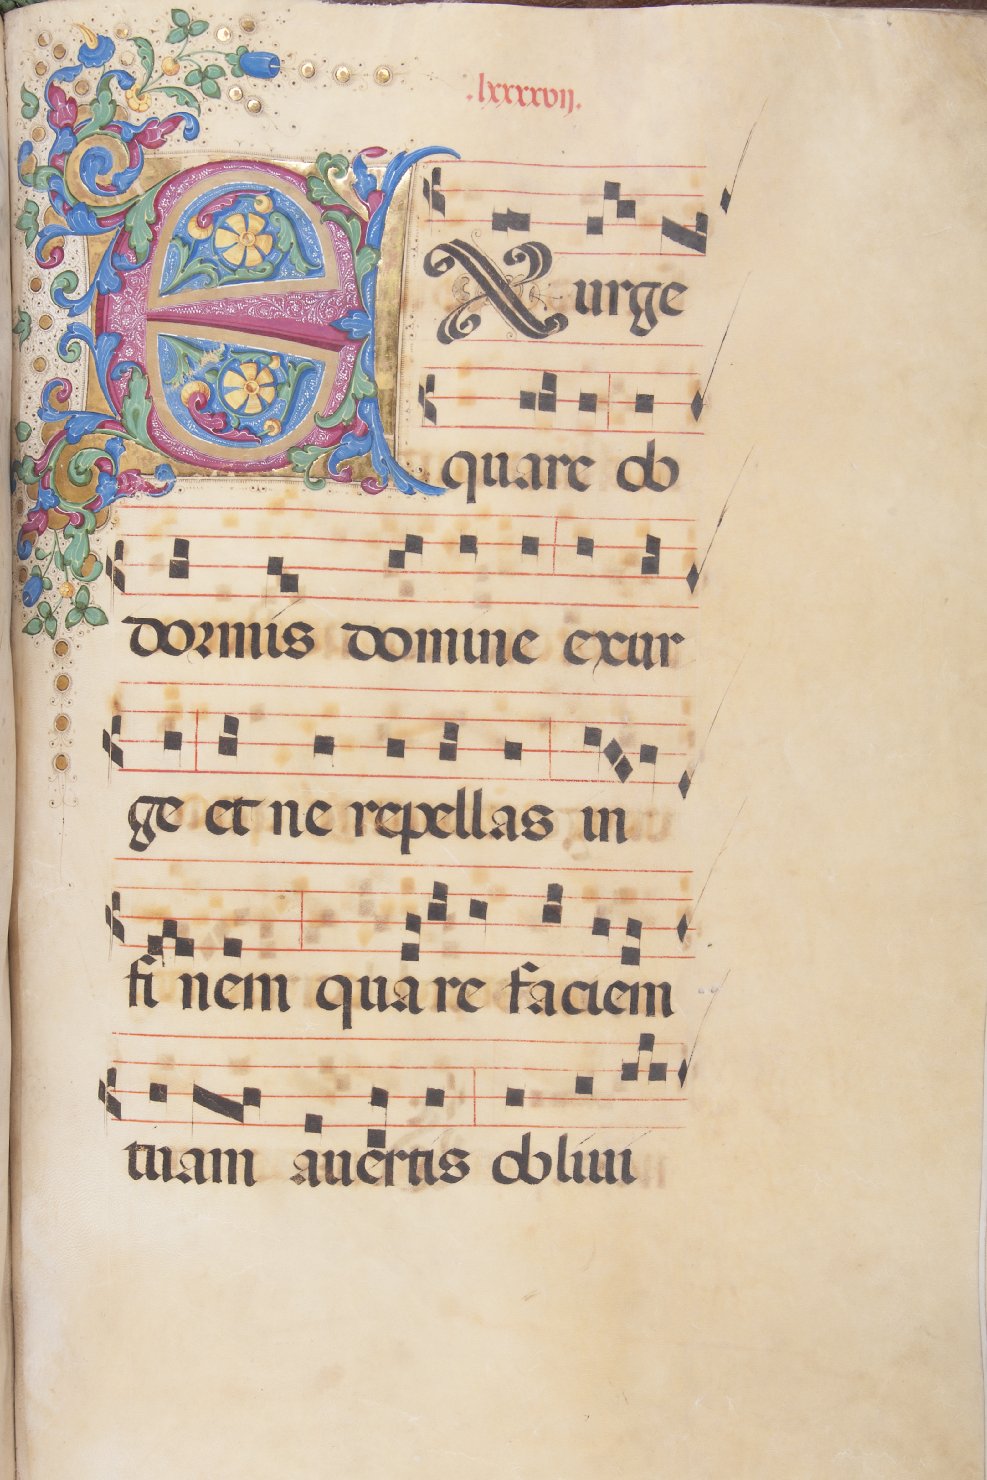 .lxxxxvij.
EXurge
quare ob
dormis domine exur
ge et ne repellas in
fi nem quare faciem
tuam auertis obliui